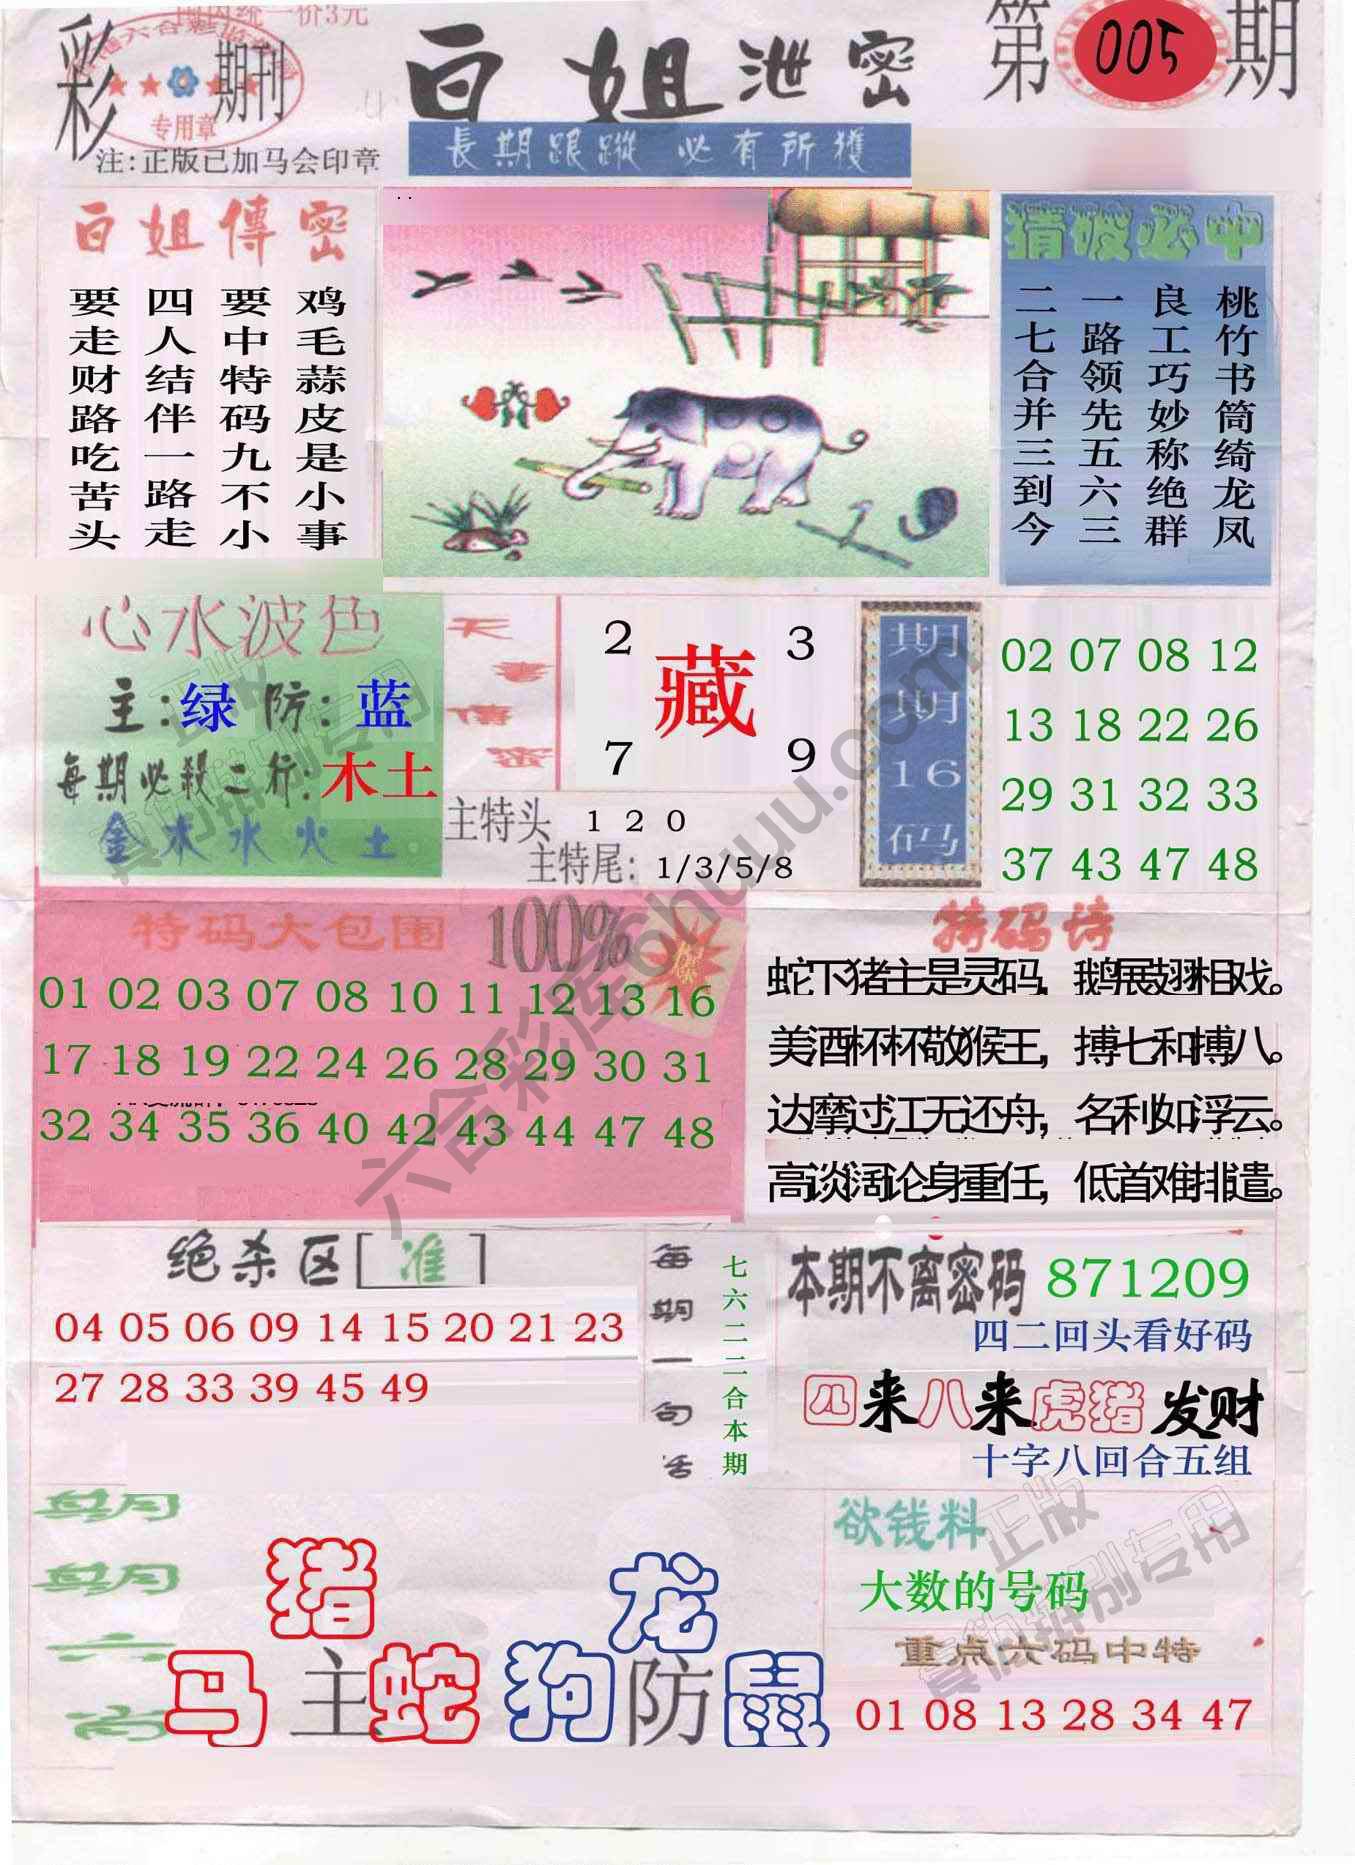 国内统一价3元
彩 期刊
专用章
注:正版已加马会印章
白姐泄密
長期跟蹤 必有所獲
第005期
白姐傳密
鸡毛蒜皮是小事
要中特码九不小
四人结伴一路走
要走财路吃苦头
猜破必中
桃竹书筒绮龙凤
良工巧妙称绝群
一路领先五六三
二七合并三到今
心水波色
主:绿 防:蓝
每期必殺二行:木土
金木水火土
天書傳密
2 3
藏
7 9
主特头 1 2 0
主特尾: 1/3/5/8
期期16码
02 07 08 12
13 18 22 26
29 31 32 33
37 43 47 48
特码大包围 100%
01 02 03 07 08 10 11 12 13 16
17 18 19 22 24 26 28 29 30 31
32 34 35 36 40 42 43 44 47 48
特码诗
蛇下猪主是灵码，鹅展翅相戏。
美酒杯杯敬猴王，搏七和搏八。
达摩过江无还舟，名利如浮云。
高谈阔论身重任，低首难排遣。
绝杀区[准]
04 05 06 09 14 15 20 21 23
27 28 33 39 45 49
每期一句话
七六二二合本期
本期不离密码 871209
四二回头看好码
四来八来虎猪发财
十字八回合五组
期期六肖
猪
马主蛇
龙
狗防鼠
欲钱料
大数的号码
重点六码中特
01 08 13 28 34 47
六合彩库6huuu.com
正版
真伪辨别专用
正版
真伪辨别专用